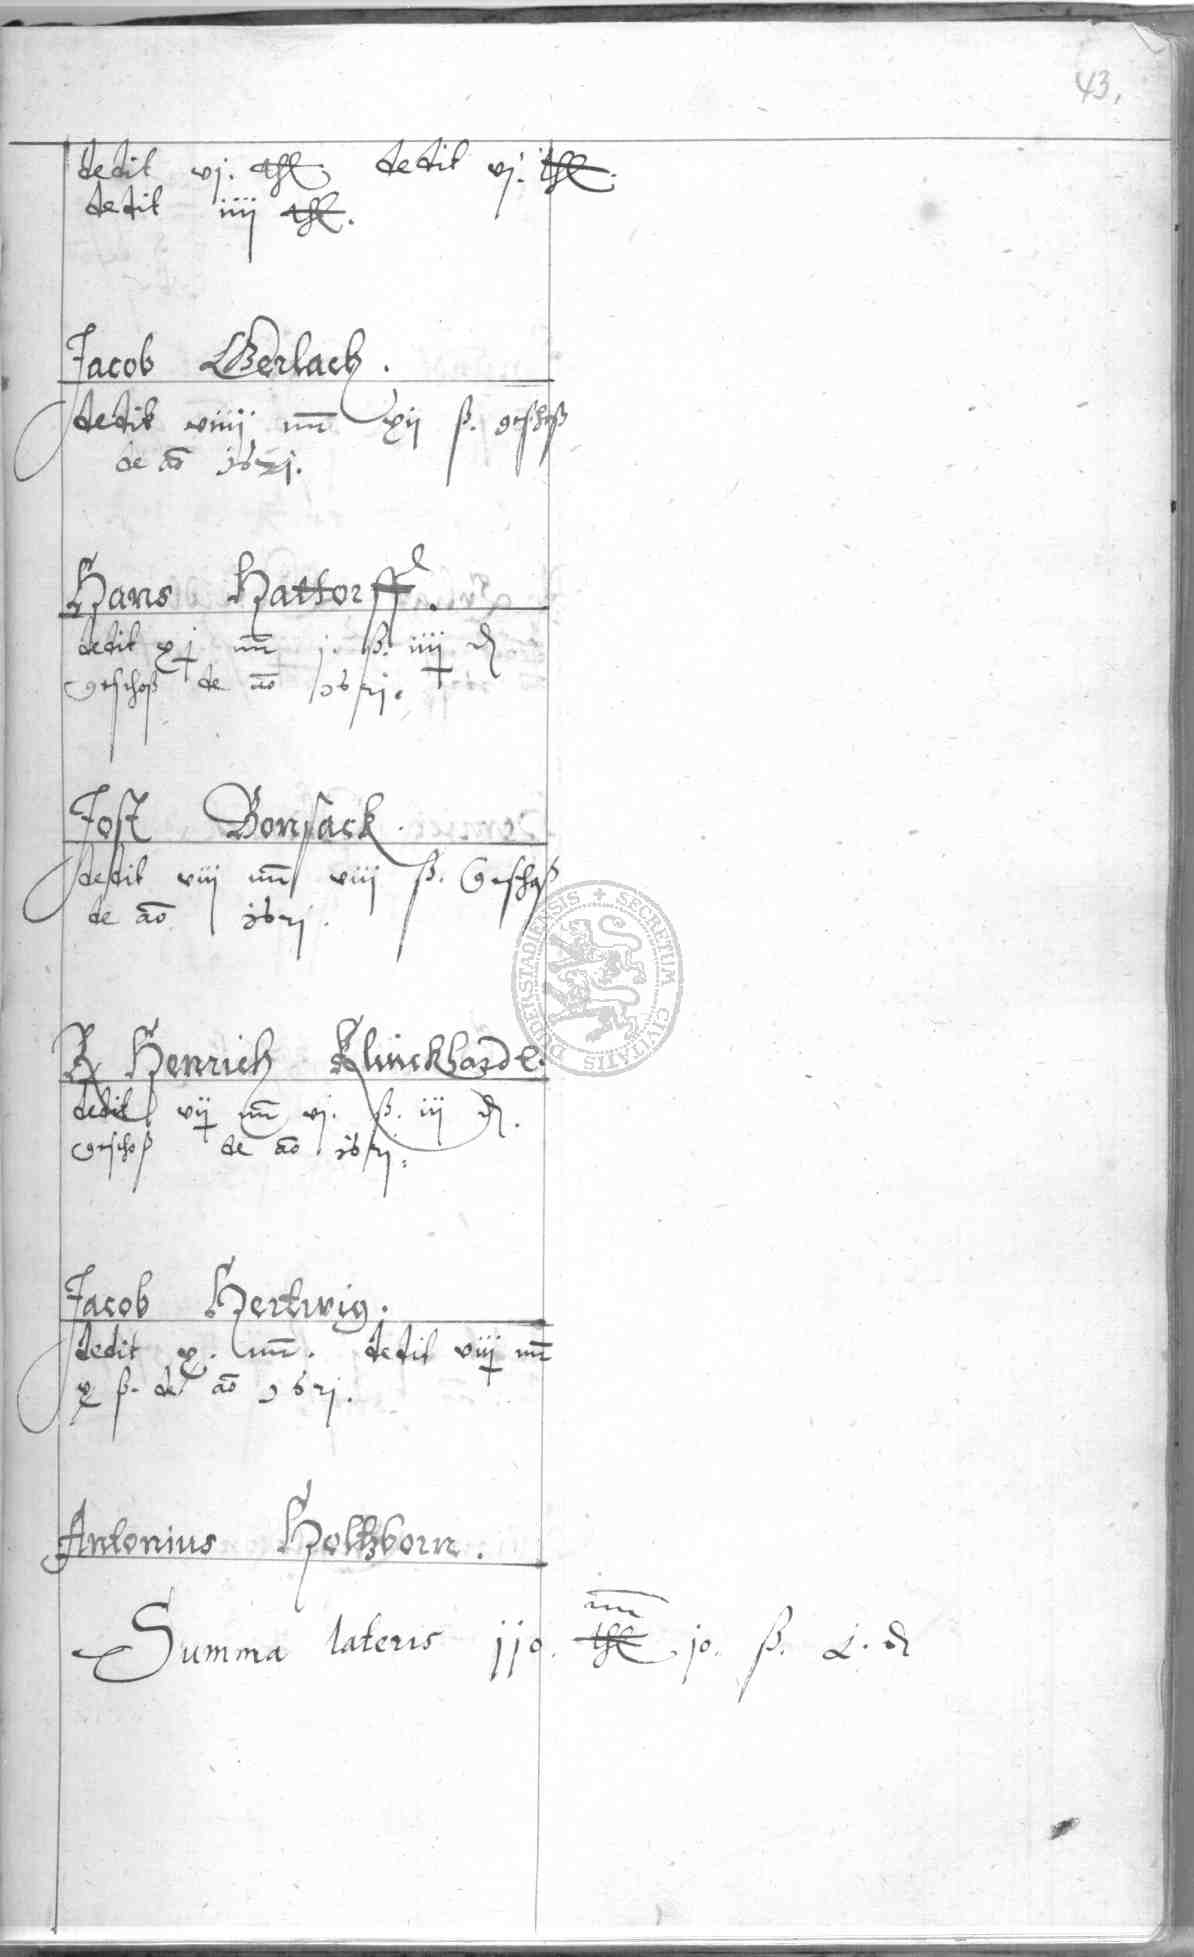 43.
dedit vj. thl. dedit vj. thl.
dedit iiij thl.
Jacob Gerlach.
dedit viiij mr xij ß. geschoß
de ao 1621.
Hans Hattorff.
dedit xj mr j. ß. iiij ₰
Geschoß de ao 1621.
Jost Bonsack.
dedit viij mr viij ß. Geschoß
de ao 1621.
Henrich Klinckhardt.
dedit vij mr vj. ß. iij ₰.
Geschoß de ao 1621.
Jacob Hertwig.
dedit x. mr. dedit viij mr
x ß. de ao 1621.
Antonius Holtzborn.
mr
Summa lateris jjo. thl jo. ß. ₰
SECRETUM CIVITATIS DUDERSTADIENSIS